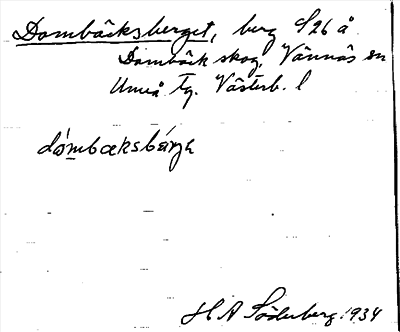 Dombäcksberget, berg S26 å
Dombäck skog, Vännäs sn
Umeå Tg. Västerb. l
dómbæksbárjə
H A Söderberg 1934